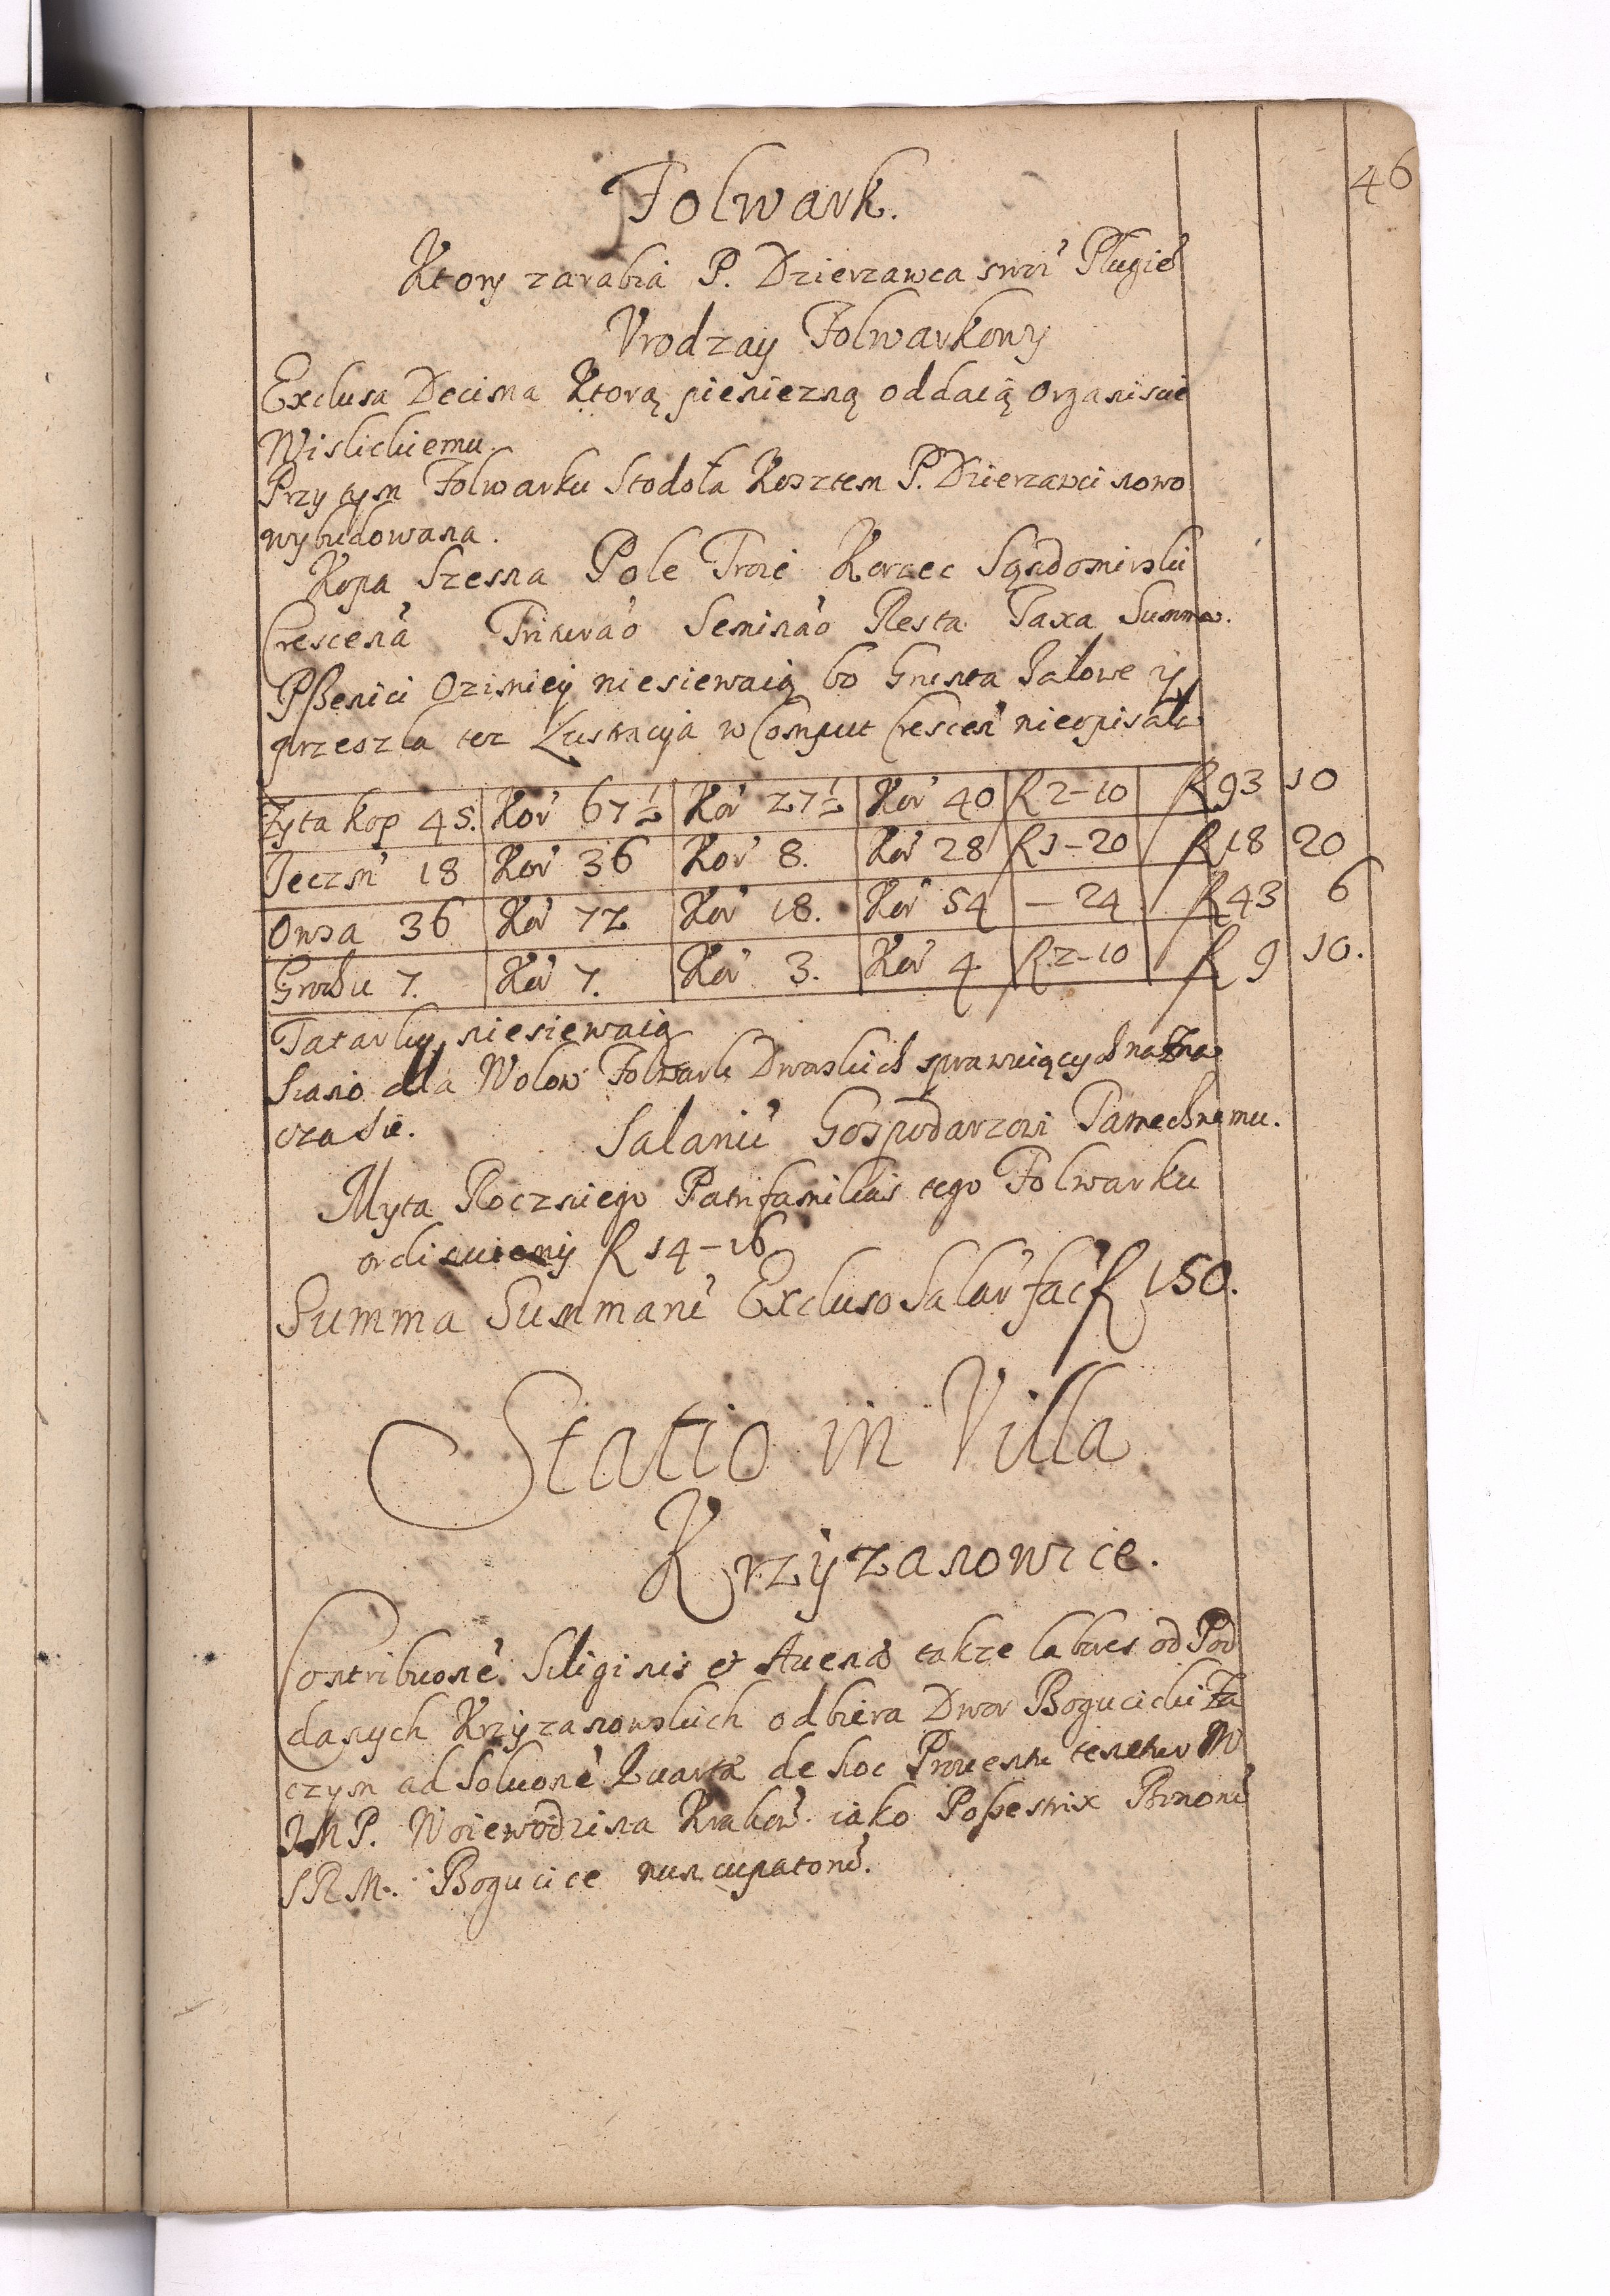 46
Folwark.
Ktory zarabia P. Dzierzawca swoi Pługie
Vrodzay Folwarkowy
Exclusa Decima Ktorą pieniezną oddaią Organiscie
Wislickiemu
Przy tym Folwarku Stodoła Kosztem P. Dzierzawci nowo
wybudowana.
Kopa Szesna Pole Troie Korzec Sądomirski
Crescená Trituraó Seminaó Resta Taxa Summa.
Pszenici Ozimiey niesiewaią bo Grunta Jałowe y
przeszla tez Lustracyia w Comput Crescen nieopisala
Zyta kop 45. Kor 67½ Kor 27½ Kor 40 R 2-10 R 93 10
Jeczm 18 Kor 36 Kor 8. Kor 28 R 1-20 R 18 20
Owsa 36 Kor 72 Kor 18. Kor 54 - 24 R 43 6
Grochu 7. Kor 7. Kor 3. Kor 4 R 2-10 R 9 10.
Tatarky niesiewaią
Siano dla Wolow Folwark Dworskich sprawuiących na Zna
czasie. Salariu Gospodarzowi Tamechnemu.
Myta Roczniego Patrifamilias tego Folwarku
R 14-16
Summa Summarú Excluso Salar fac R 150.
Statio in Villa
Krzyzanowice.
Contribuoné Siliginis et Auenæ takze labores od Pod
danych Krzyzanowskich odbiera Dwor Bogucicki Za
czym ad Soluoné Quartæ de hoc Prouentu tenetur W
JMP. Woiewodzina Krakow. iako Possestrix Bonorú
SRM. Bogucice nuncupatorú.